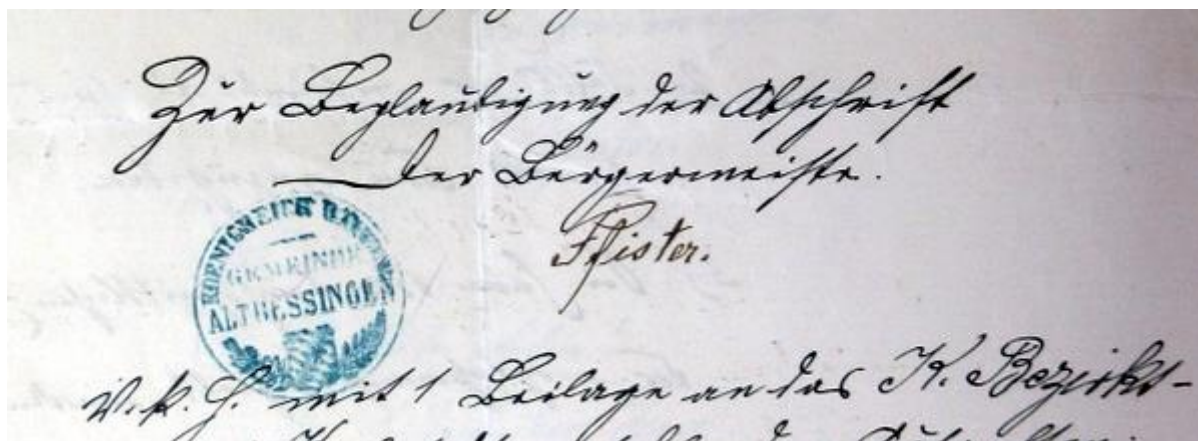 Zur Beglaubigung der Abschrift
Der Bürgermeister.
Pfister.
KOENIGREICH BAYERN
GEMEINDE
ALTBESSINGEN
mit 1 Beilage an das K. Bezirks-